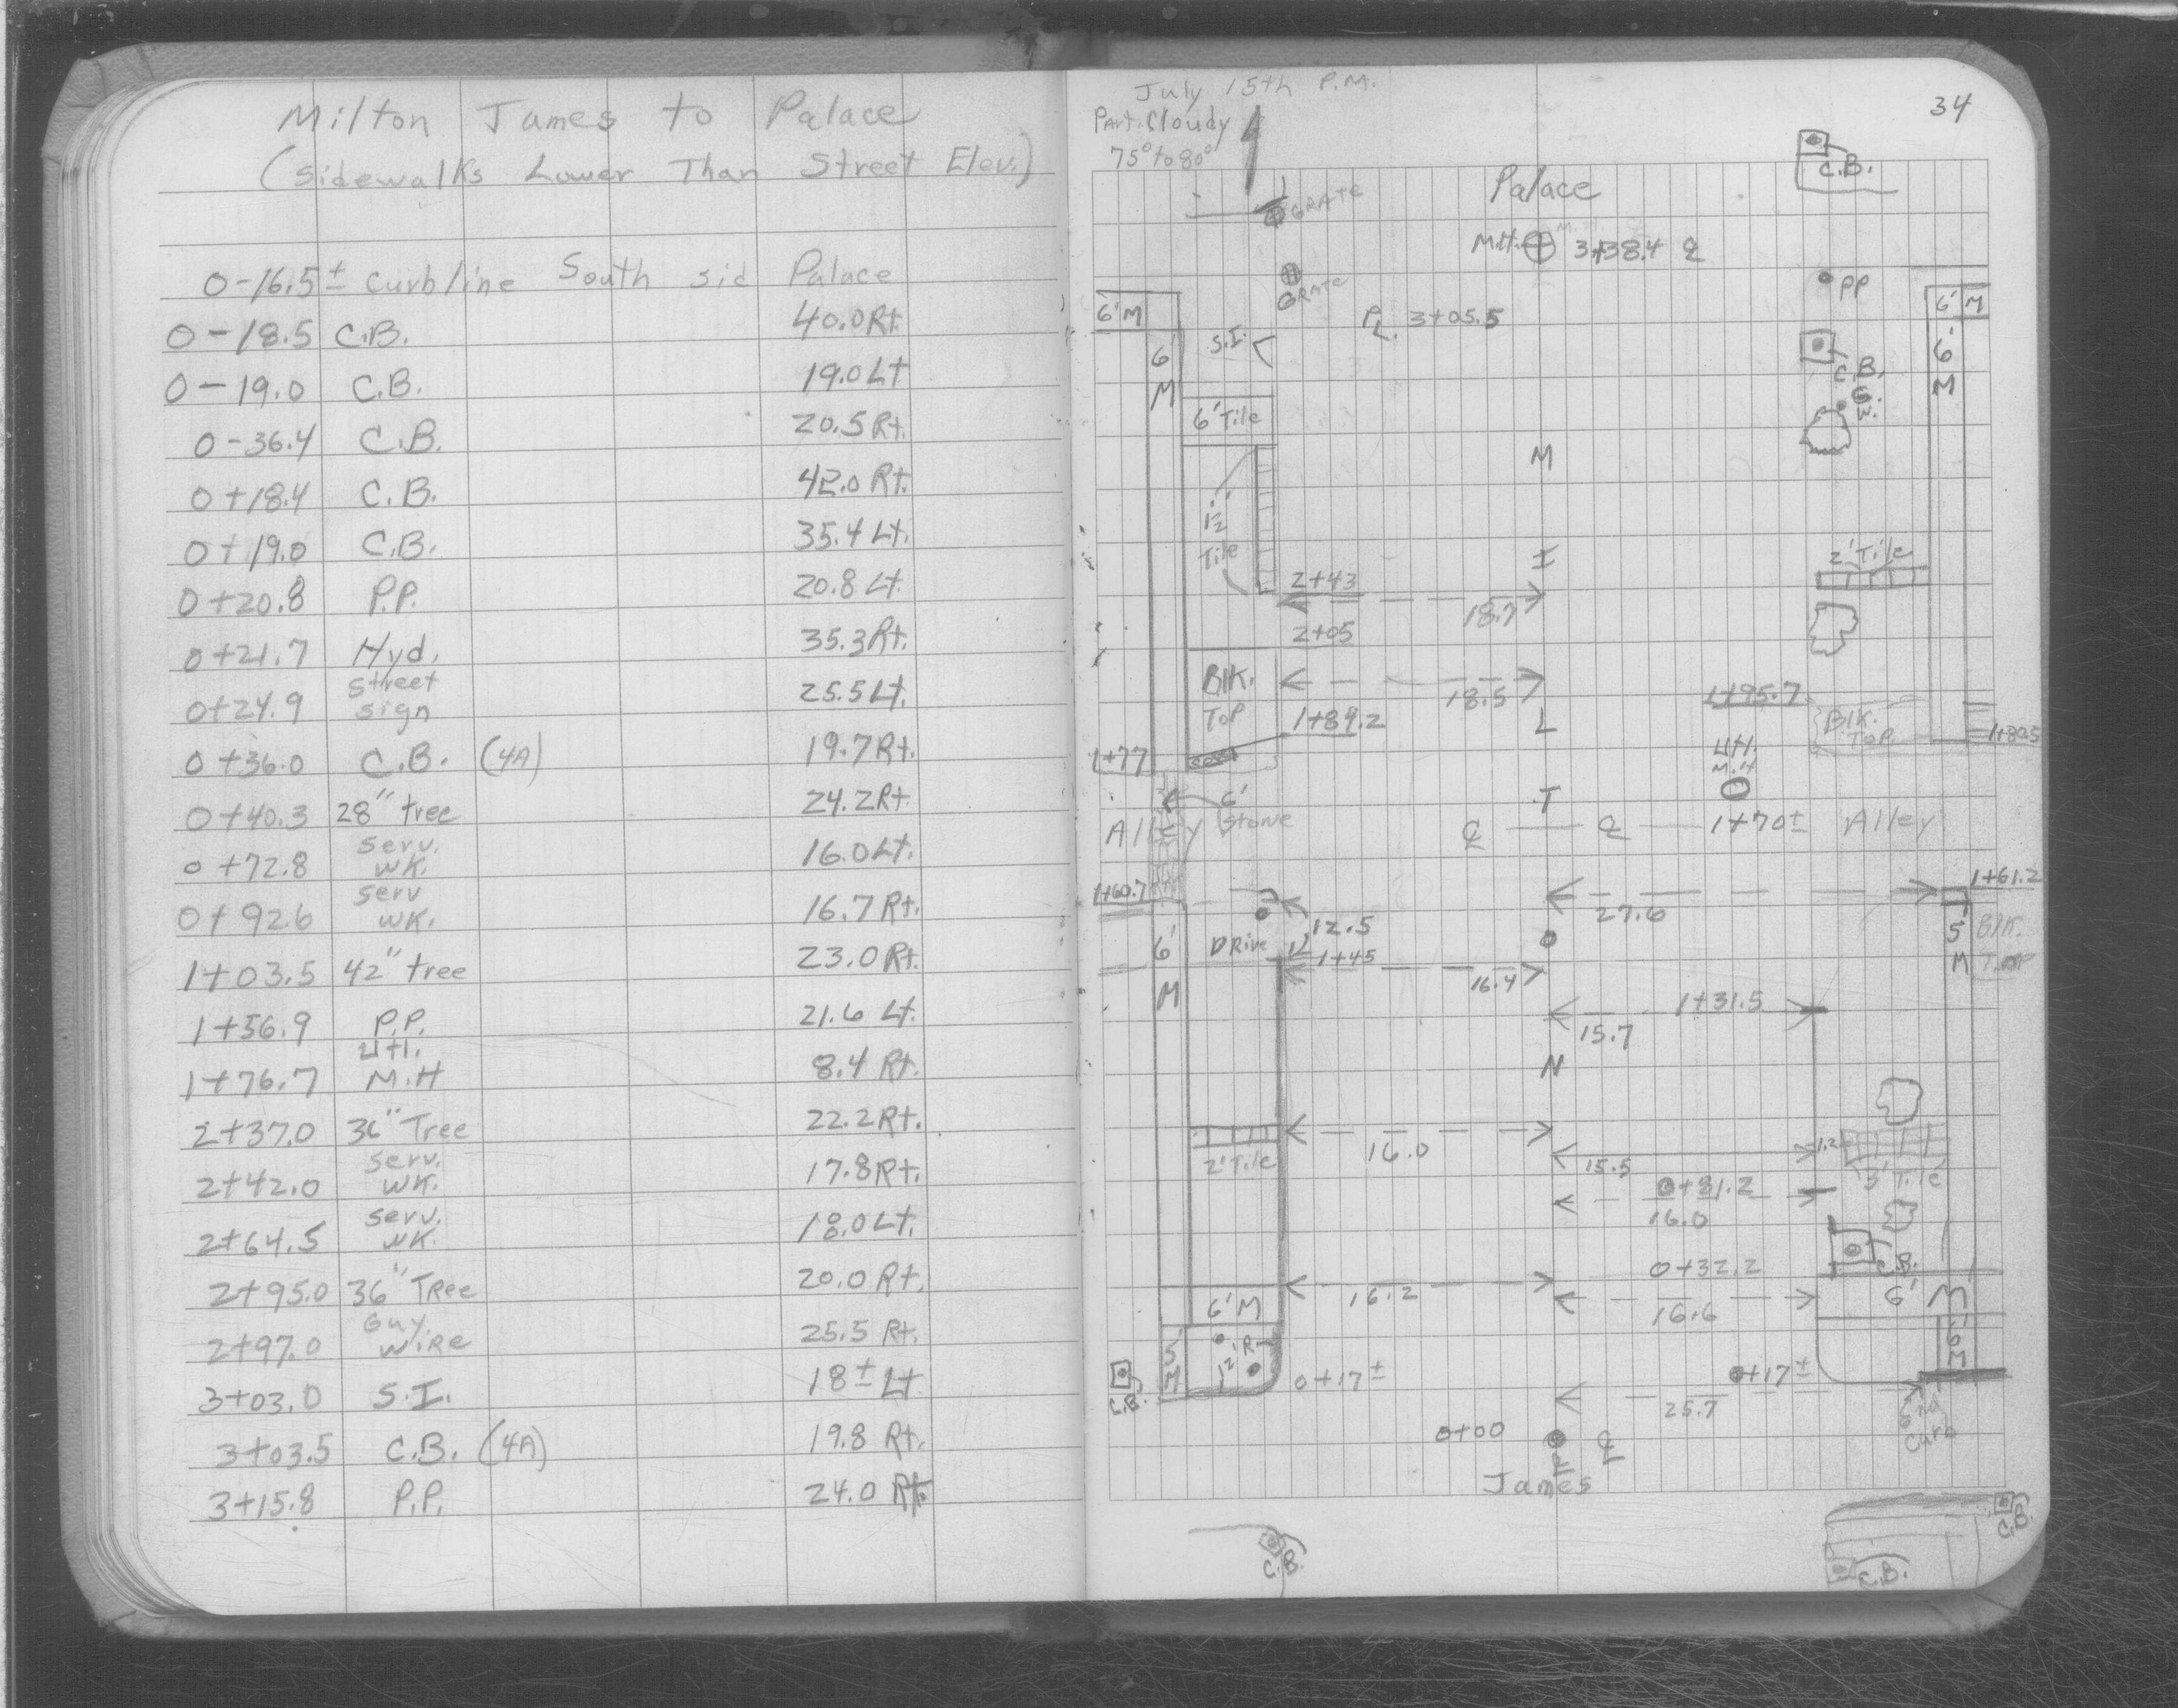 Milton James to Palace
(Sidewalks Lower Than Street Elev.)
0-16.5± curbline South sid Palace
0-18.5 C.B. 40.0 Rt.
0-19.0 C.B. 19.0 Lt
0-36.4 C.B. 20.5 Rt.
0+18.4 C.B. 42.0 Rt.
0+19.0 C.B. 35.4 Lt.
0+20.8 P.P. 20.8 Lt.
0+21.7 Hyd. 35.3 Rt.
0+24.9 Street sign 25.5 Lt.
0+36.0 C.B. (4A) 19.7 Rt.
0+40.3 28" tree 24.2 Rt
0+72.8 Serv. WK. 16.0 Lt.
0+92.6 Serv WK. 16.7 Rt.
1+03.5 42" tree 23.0 Rt.
1+56.9 P.P. 21.6 Lt.
1+76.7 Utl. M.H 8.4 Rt.
2+37.0 36" Tree 22.2 Rt.
2+42.0 Serv. WK. 17.8 Rt.
2+64.5 Serv. WK. 18.0 Lt.
2+95.0 36" TRee 20.0 Rt.
2+97.0 Guy WiRe 25.5 Rt.
3+03.0 S.I. 18± Lt
3+03.5 C.B. (4A) 19.8 Rt.
3+15.8 P.P. 24.0 Rt.
July 15th P.M.
Part. Cloudy
75° to 80°
34
C.B.
Palace
GRATE
M.H. 3+38.4 ℄
GRATE
PP
6' M
S.I.
PL. 3+05.5
6' M
6' M
C.B.
6' M
G.
W.
6' Tile
M
1½'
Tile
I
2' Tile
2+43
18.7
2+05
Blk.
Top
18.5
1+95.7
Blk.
Top
1+84.2
L
1+89.5
1+77
Utl.
M.H
6'
Stone
T
Alley
℄ ℄ 1+70± Alley
1+60.7
1+61.2
27.6
12.5
6' M
DRive
1+45
O
5' M
Blk.
Top
16.4
1+31.5
15.7
N
16.0
2' Tile
15.5
1.2
3' Tile
0+81.2
16.0
C.B.
0+32.2
16.2
6' M
16.6
6' M
5' M
12' R
6' M
C.B.
0+17±
0+17±
25.7
End
Curb
0+00
℄
James
C.B.
C.B.
C.B.